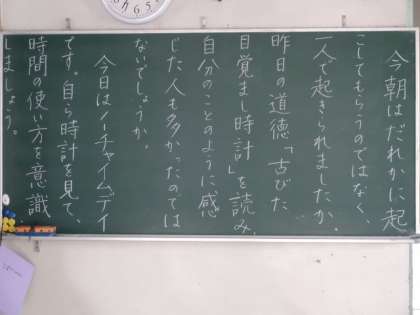 今朝はだれかに起
こしてもらうのではなく、
一人で起きられましたか。
昨日の道徳「古びた
目覚まし時計」を読み、
自分のことのように感
じた人も多かったのでは
ないでしょうか。
今日はノーチャイムデイ
です。自ら時計を見て、
時間の使い方を意識
しましょう。